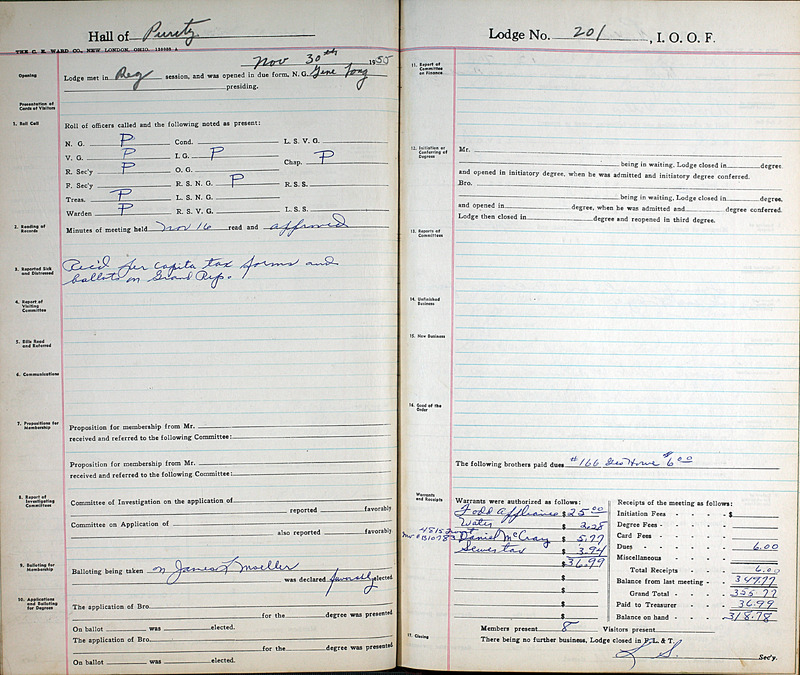 Hall of Purity
THE C. E. WARD CO., NEW LONDON, OHIO.
Nov 30th 1955
Opening
Lodge met in Reg session, and was opened in due form, N. G. Gene Long
presiding.
Presentation of Cards of Visitors
1. Roll Call
Roll of officers called and the following noted as present:
N. G. P Cond. L. S. V. G.
V. G. P I. G. P Chap. P
R. Sec'y P O. G.
F. Sec'y R. S. N. G. P R. S. S.
Treas. P L. S. N. G.
Warden P R. S. V. G. L. S. S.
2. Reading of Records
Minutes of meeting held Nov 16 read and approved
3. Reported Sick and Distressed
Rec'd per capita tax forms and
ballots on Grand Rep.
4. Report of Visiting Committee
5. Bills Read and Referred
6. Communications
7. Propositions for Membership
Proposition for membership from Mr.
received and referred to the following Committee:
Proposition for membership from Mr.
received and referred to the following Committee:
8. Report of Investigating Committees
Committee of Investigation on the application of
reported favorably
Committee on Application of
also reported favorably
9. Balloting for Membership
Balloting being taken on James L Moeller
was declared favorably elected
10. Applications and Balloting for Degrees
The application of Bro.
for the degree was presented
On ballot was elected.
The application of Bro.
for the degree was presented
On ballot was elected.
Lodge No. 201, I. O. O. F.
11. Report of Committee on Finance
12. Initiation or Conferring of Degrees
Mr.
being in waiting. Lodge closed in degree
and opened in initiatory degree, when he was admitted and initiatory degree conferred.
Bro.
being in waiting, Lodge closed in degree,
and opened in degree, when he was admitted and degree conferred.
Lodge then closed in degree and reopened in third degree.
13. Reports of Committees
14. Unfinished Business
15. New Business
16. Good of the Order
The following brothers paid dues #166 Geo Howe $6.00
Warrants and Receipts
Warrants were authorized as follows:
Todd Appliance $ 25 00
Water $ 2.28
Daniel McCray $ 5.77
Sewer tax $ 3.94
$ 36.99
$
$
$
$
Receipts of the meeting as follows:
Initiation Fees $
Degree Fees
Card Fees
Dues 6.00
Miscellaneous
Total Receipts 6.00
Balance from last meeting 349.77
Grand Total 355.77
Paid to Treasurer 36.99
Balance on hand 318.78
Members present 8 Visitors present
17. Closing
There being no further business, Lodge closed in F., L. & T.
L S. Sec'y.